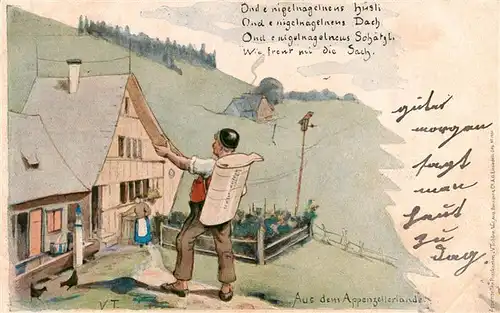 Ond e nigelnagelneus Hüsli
Ond e nigelnagelneus Dach,
Ond e nigelnagelneus Schätzli,
Wie freut mi die Sach.
guter
morgen
sagt
man
heut
zu
dag
V.T.
Aus dem Appenzellerlande.